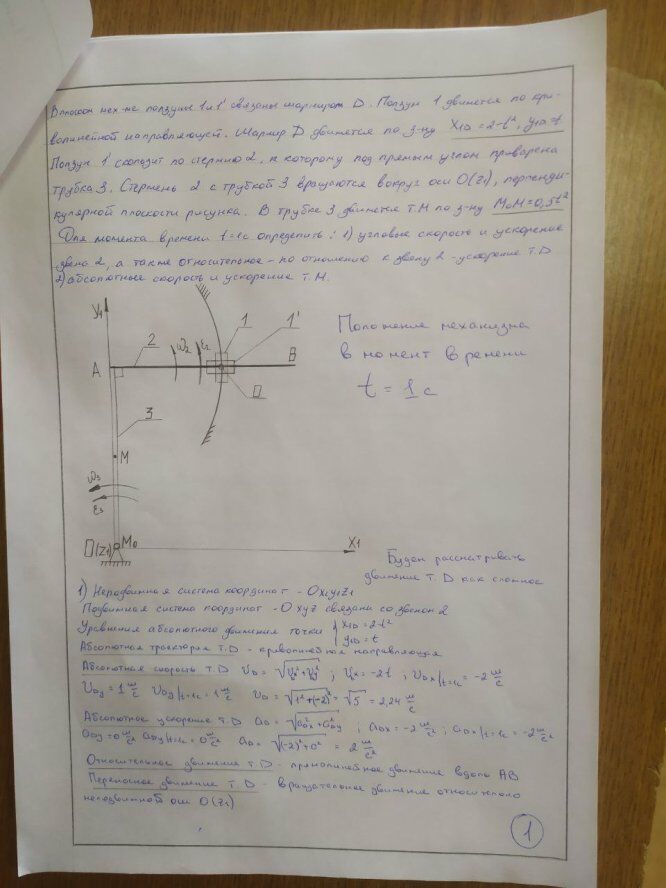 В плоском мех-ме ползуны 1 и 1' связаны шарниром D. Ползун 1 движется по кри-
волинейной направляющей. Шарнир D движется по з-ну X1D = 2-t², y1D = t
Ползун 1' скользит по стержню 2, к которому под прямым углом приварена
трубка 3. Стержень 2 с трубкой 3 вращаются вокруг оси O(Z1), перпенди-
кулярной плоскости рисунка. В трубке 3 движется т.М по з-ну M0M = 0,5t²
Для момента времени t=1с определить: 1) угловые скорость и ускорение
звена 2, а также относительное - по отношению к звену 2 - ускорение т.D
2) абсолютные скорость и ускорение т.М.
Y1
1
1'
2
ω2
ε2
A
B
D
3
M
ω3
ε3
O(Z1)
M0
X1
Положение механизма
в момент времени
t = 1 с
Будем рассматривать
движение т.D как сложное
1) Неподвижная система координат - Ox1y1z1
Подвижная система координат - Oxyz связана со звеном 2
Уравнения абсолютного движения точки { x1D = 2-t²
y1D = t
Абсолютная траектория т.D - криволинейная направляющая
Абсолютная скорость т.D VD = √Vx²+Vy² ; VDx = -2t ; VDx|t=1c = -2 м/с
VDy = 1 м/с VDy|t=1c = 1 м/с VD = √1²+(-2)² = √5 = 2,24 м/с
Абсолютное ускорение т.D aD = √aDx²+aDy² ; aDx = -2 м/с² ; aDx|t=1c = -2 м/с²
aDy = 0 м/с² aDy|t=1c = 0 м/с² aD = √(-2)²+0² = 2 м/с²
Относительное движение т.D - прямолинейное движение вдоль AB
Переносное движение т.D - вращательное движение относительно
неподвижной оси O(Z1)
1